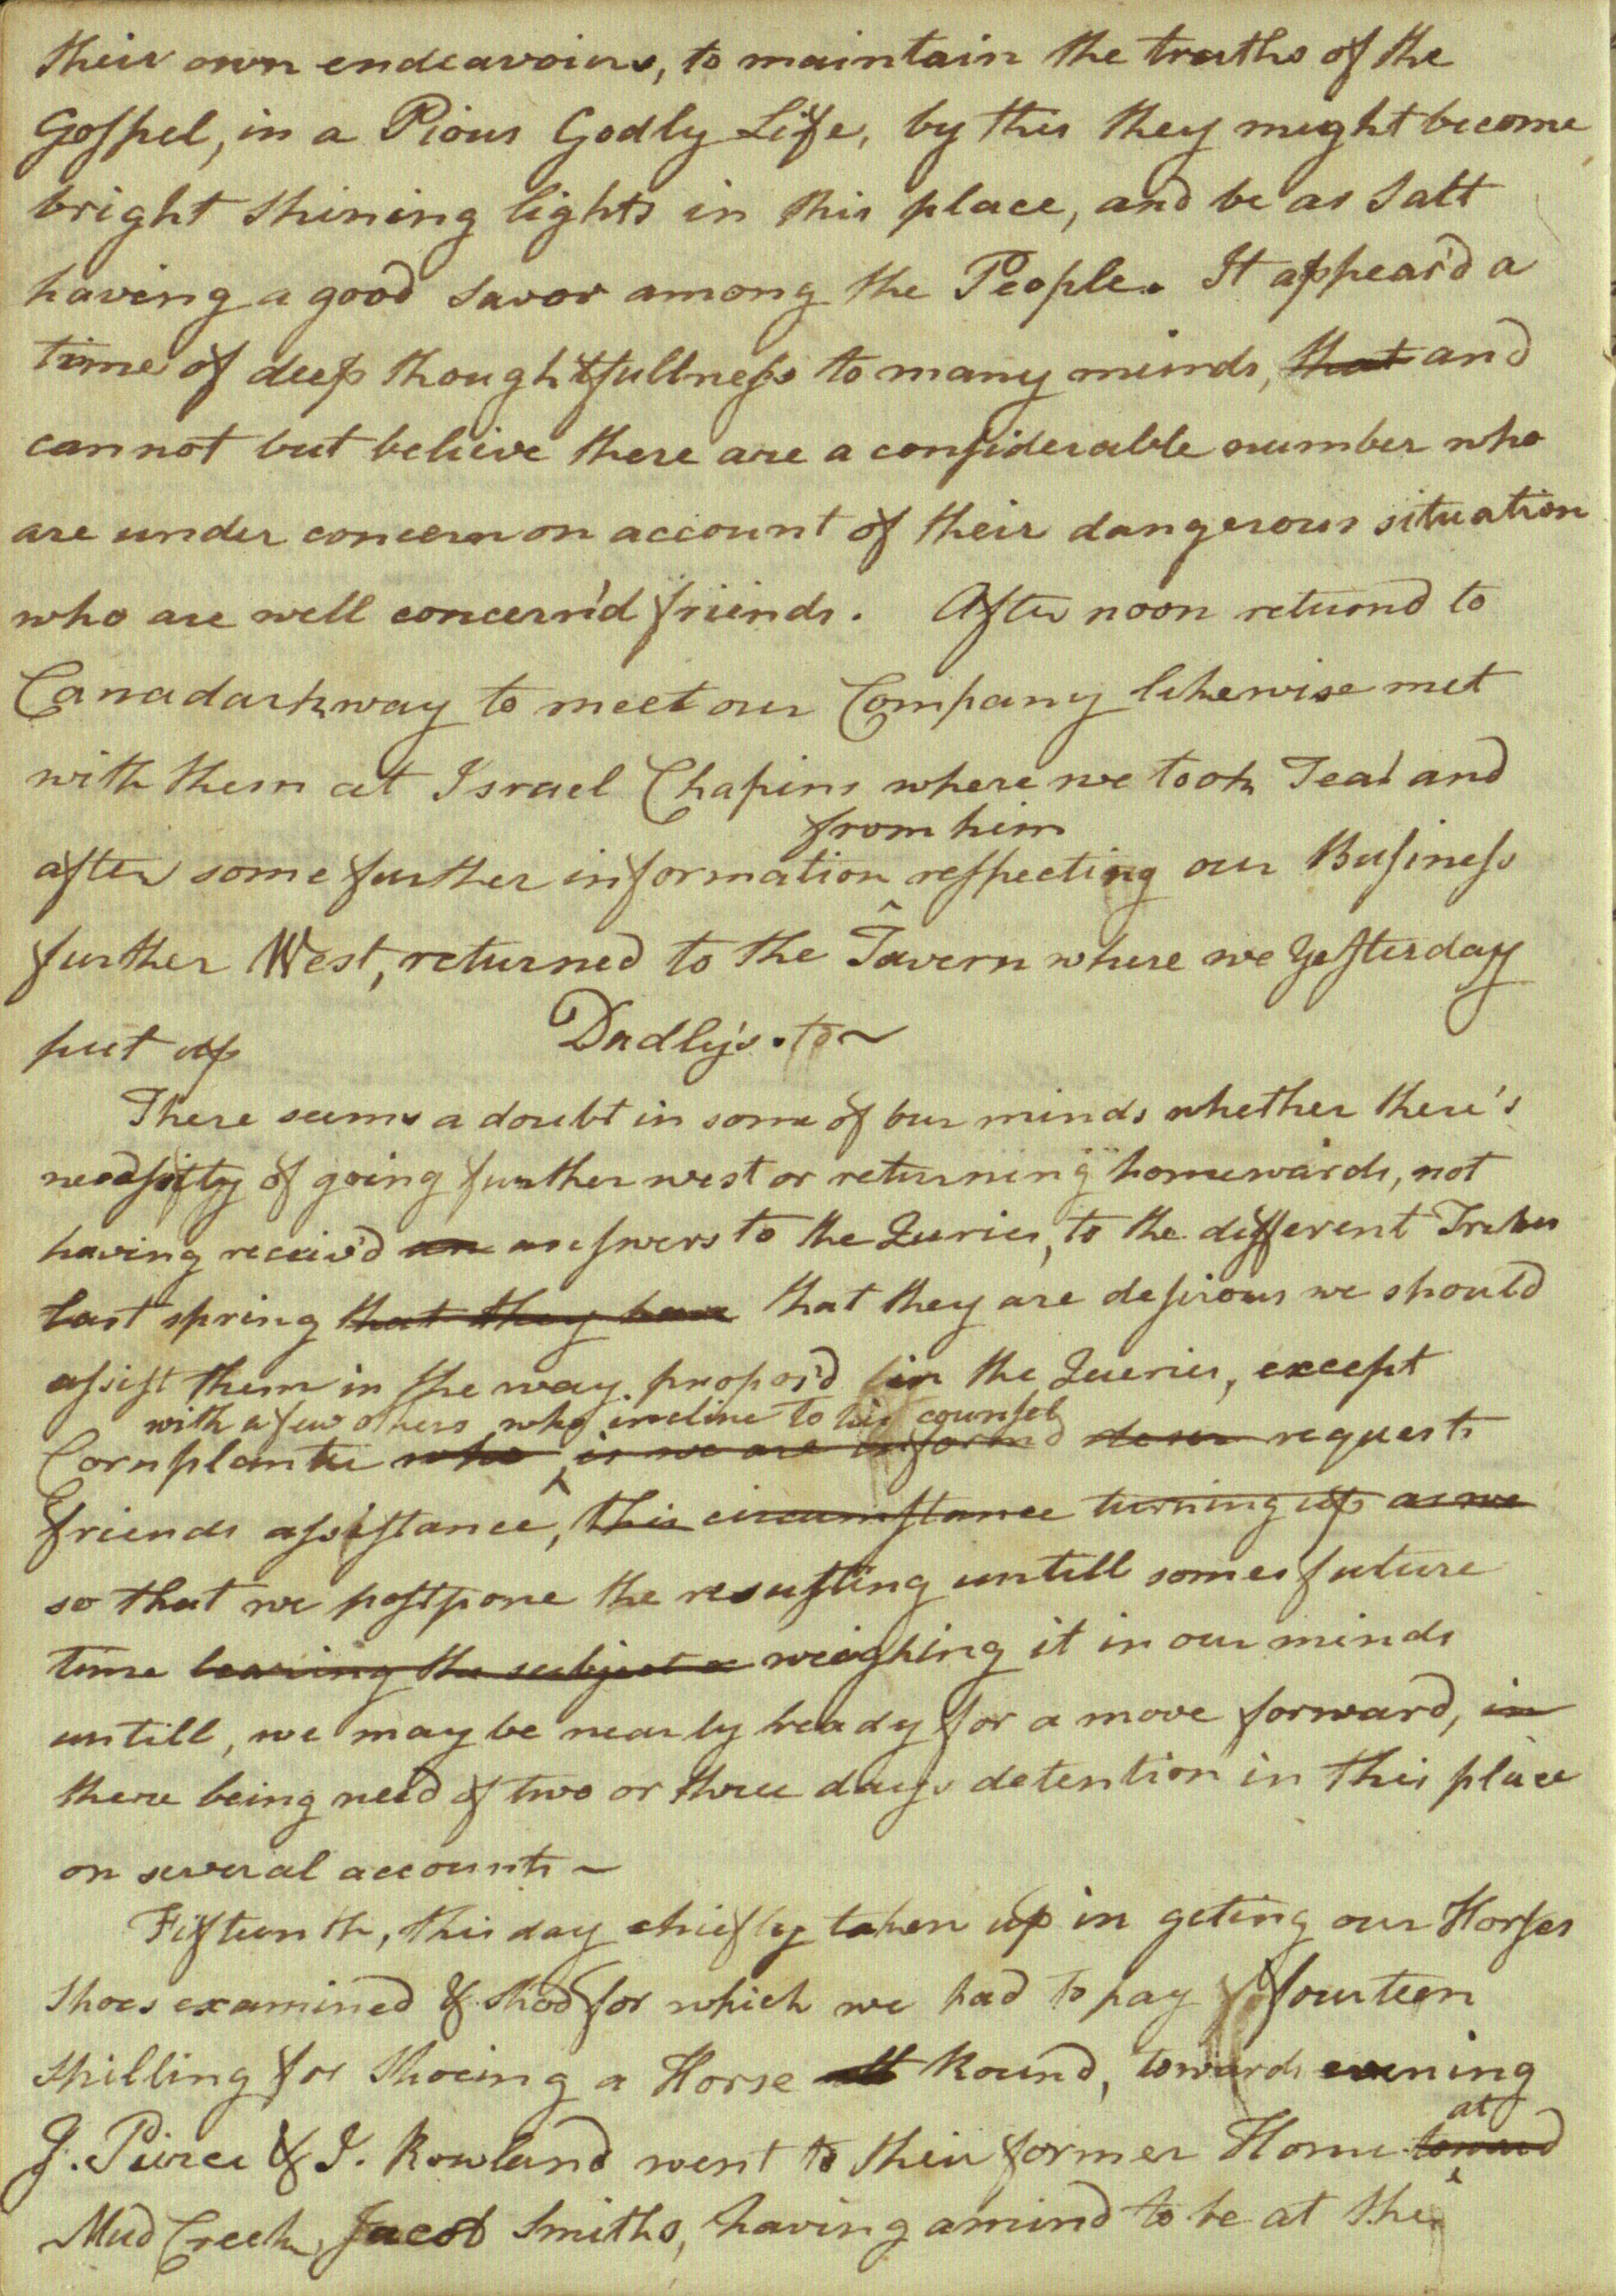 their own endeavours, to maintain the truths of the
Gospel, in a Pious Godly Life, by this they might become
bright shining lights in this place, and be as Salt
having a good Savor among the People. It appear'd a
time of deep thoughtfullness to many minds, that and
cannot but believe there are a considerable number who
are under concern on account of their dangerous situation
who are well concern'd friends. After noon returnd to
Canadarkway to meet our Company likewise met
with them at Israel Chapins where we took Tea and
from him
after some further information respecting our Business
further West, returned to the Tavern where we yesterday
put up Dudly's.
There seems a doubt in some of our minds whether there's
necessity of going further west or returning homewards, not
having receiv'd an answers to the Quries, to the different Tribes
last spring that they have that they are desirous we should
assist them in the way propos'd in the Queries, except
with a few others who incline to his counsel
Cornplanter who is we are informd desir requests
friends assistance, this circumstance turning up as we
so that we postpone the resulting untill some future
time leaving the subject weighing it in our minds
untill, we may be nearly ready for a move forward, in
there being need of two or three days detention in this place
on several accounts ~
Fifteenth, this day chiefly taken up in geting our Horses
Shoes examined & Shod for which we had to pay fourteen
Shilling for Shoeing a Horse all Round, towards evening
at
J. Peirce & J. Rowland went to their former Home toward
Mud Creek, Jacob Smiths, having a mind to be at the